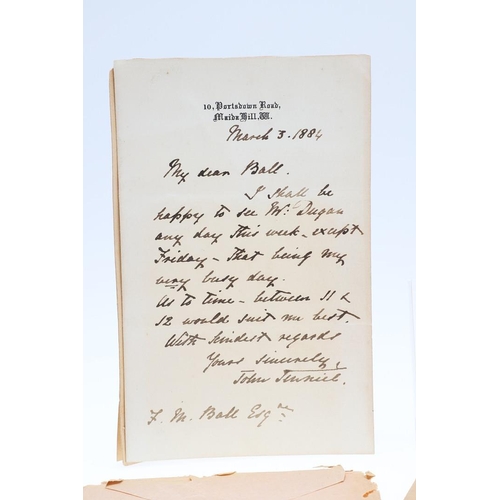 10, Portsdown Road,
Maida Hill. W.
March 3. 1884
My dear Ball.
I shall be
happy to see Mr. Dugan
any day this week - except
Friday - that being my
very busy day.
As to time - between 11 &
12 would suit me best.
With kindest regards
Yours sincerely,
John Tenniel.
F. M. Ball Esqre